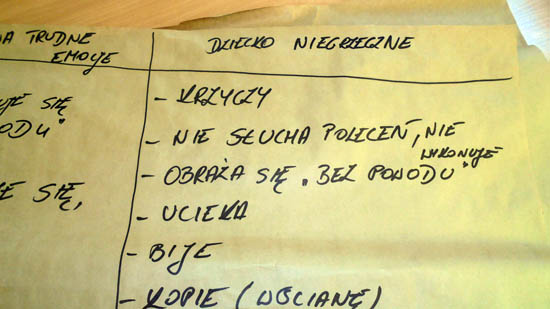 NA TRUDNE
EMOCJE
UJE SIĘ
ODU"
E SIĘ,
DZIECKO NIEGRZECZNE
- KRZYCZY
- NIE SŁUCHA POLECEŃ, NIE
WYKONUJE
- OBRAŻA SIĘ „BEZ POWODU"
- UCIEKA
- BIJE
- KOPIE (W ŚCIANĘ)